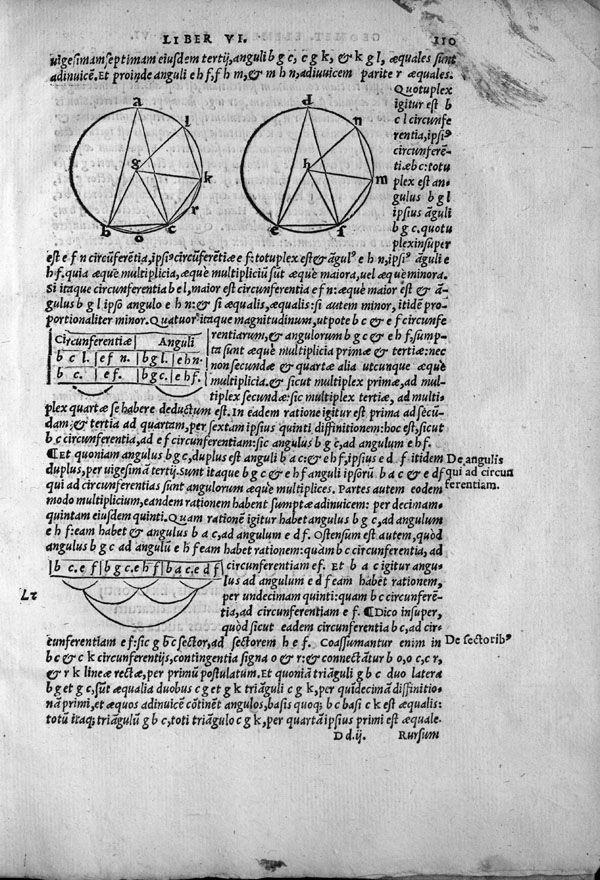 LIBER VI. 110
uigesimamseptimam eiusdem tertij, anguli b g c, c g k, & k g l, æquales sunt
adinuicẽ. Et proinde anguli e h f, f h m, & m h n, adiuuicem pariter æquales.
Quotuplex
igitur est b
c l circunfe
rentia, ipsiꝰ
circunferẽ-
tiæ b c: totu
plex est an-
gulus b g l
ipsius ãguli
b g c. quotu
plex insuper
a l g k r b o c
d n h m e f
est e f n circũferẽtia, ipsiꝰ circũferẽtiæ e f: totuplex est & ãgulꝰ e h n, ipsiꝰ ãguli e
h f. quia æquè multiplicia, æquè multipliciũ sũt æquè maiora, uel æquè minora.
Si itaque circunferentia b e l, maior est circunferentia e f n: æquè maior est & ã-
gulus b g l ipso angulo e h n: & si æqualis, æqualis: si autem minor, itidẽ pro-
portionaliter minor. Quatuor itaque magnitudinum, utpote b c & e f circunfe
rentiarum, & angulorum b g c & e h f, sũmp-
ta sunt æquè multiplicia primæ & tertiæ: nec
non secundæ & quartæ alia utcunque æquè
multiplicia. & sicut multiplex primæ, ad mul-
tiplex secundæ: sic multiplex tertiæ, ad multi-
Circunferentiæ | Anguli
b c l. | e f n. | b g l. | e h n.
b c. | e f. | b g c. | e h f.
plex quartæ se habere deductum est. In eadem ratione igitur est prima ad secũ-
dam: & tertia ad quartam, per sextam ipsius quinti diffinitionem: hoc est, sicut
b c circunferentia, ad e f circunferentiam: sic angulus b g c, ad angulum e h f.
¶Et quoniam angulus b g c, duplus est anguli b a c: & e h f, ipsius e d f itidem
duplus, per uigesimã tertij. Sunt itaque b g c & e h f anguli ipsorũ b a c & e d f
qui ad circunferentias sunt angulorum æquè multiplices. Partes autem eodem
modo multiplicium, eandem rationem habent sumptæ adinuicem: per decimam-
quintam eiusdem quinti. Quam rationẽ igitur habet angulus b g c, ad angulum
e h f: eam habet & angulus b a c, ad angulum e d f. Ostensum est autem, quòd
angulus b g c ad angulũ e h f eam habet rationem: quàm b c circunferentia, ad
De angulis
qui ad circun
ferentiam.
b c. e f | b g c. e h f | b a c. e d f
circunferentiam e f. Et b a c igitur angu-
lus ad angulum e d f eam habet rationem,
per undecimam quinti: quam b c circunferẽ-
tia, ad circunferentiam e f. ¶Dico insuper,
quòd sicut eadem circunferentia b c, ad cir-
cunferentiam e f: sic g b c sector, ad sectorem h e f. Coassumantur enim in
De sectoribꝰ
b c & c k circunferentijs, contingentia signa o & r: & connectãtur b o, o c, c r,
& r k lineæ rectæ, per primũ postulatum. Et quoniã trianguli g b c duo latera
b g et g c, sũt æqualia duobus c g et g k triãguli c g k, per quidecimã diffinitio-
nã primi, et æquos adinuicẽ cõtinẽt angulos, basis quoqꝫ b c basi c k est æqualis:
totũ itaqꝫ triãgulũ g b c, toti triãgulo c g k, per quartã ipsius primi est æquale.
D d.ij. Rursum